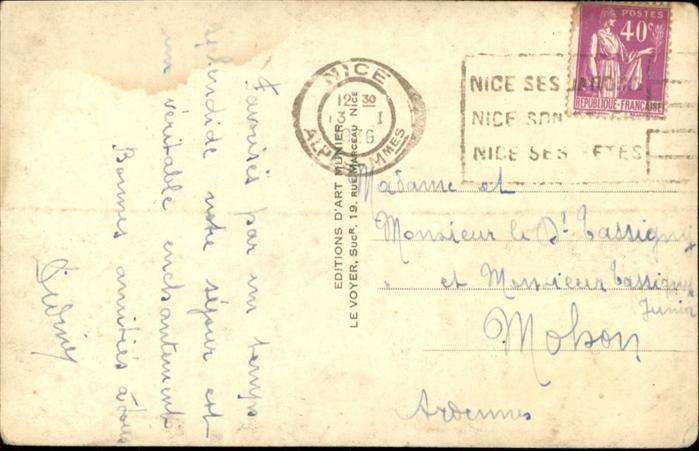 Favorisés par un temps
splendide notre séjour est
un véritable enchantement
Bonnes amitiés à tous
EDITIONS D'ART MUNIER
LE VOYER, Sucr. 19, RUE MARCEAU NICE
NICE
12 30
3 I
ALPES MMES
NICE SES
NICE SON
NICE SES FETES
POSTES
40c
REPUBLIQUE-FRANÇAISE
Madame et
Monsieur le Dr Tassigny
et Monsieur Tassigny
Junior
Mohon
Ardennes